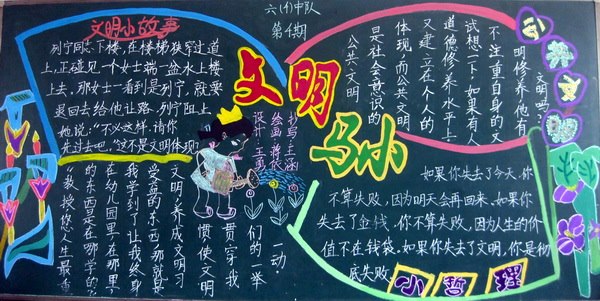 六(4)中队
第4期
文明小故事
列宁同志下楼,在楼梯狭窄过道
上,正碰见一个女士端一盆水上楼
上去,那女士一看到是列宁,就要
退回去给他让路,列宁阻上
她说:"不必这样,请你
先过去吧。"这不是文明体现?
"教授您人生最重
的东西是在哪学的?"
在幼儿园里,在那里
我学到了让我终身
受益的东西,那就是
文明,养成文明习
惯使文明
贯穿我
们的一举
一动。
文明
马小
设计:王勇
绘画:蒋欣
书写:王涵
公共文明
是社会意识的
体现,而公共文明
又建立在个人的
道德修养水平上
试想一下,如果有人
不注重自身的文
明修养,他有
文明吗?
如果你失去了今天,你
不算失败,因为明天会再回来,如果你
失去了金钱,你不算失败,因为人生的价
值不在钱袋,如果你失去了文明,你是彻
底失败
小哲理